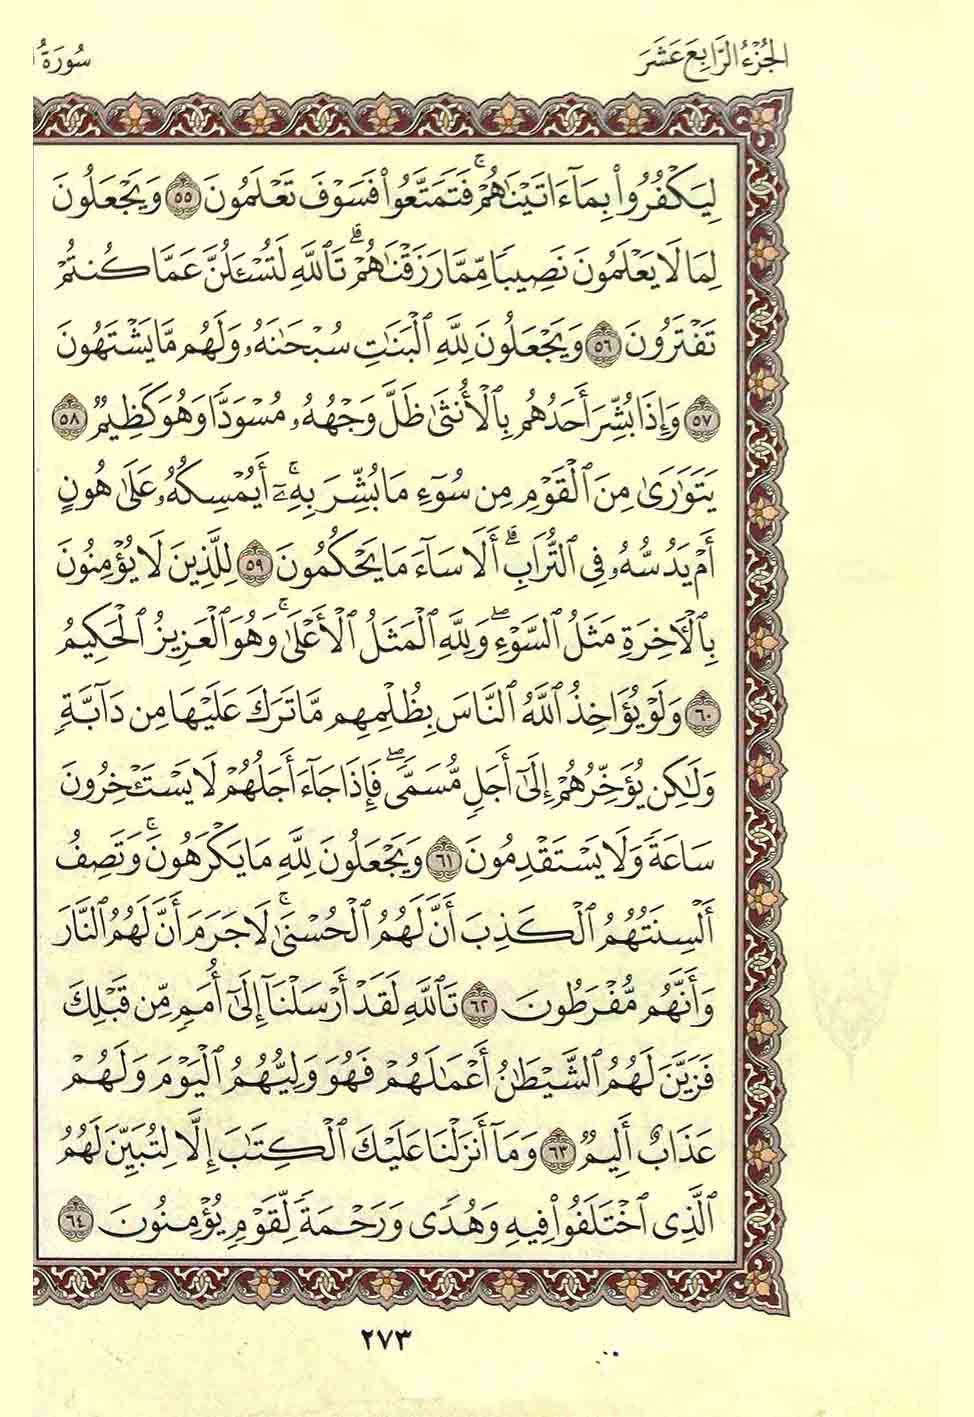 الجُزْءُ الرَّابِعَ عَشَرَ
سُورَةُ
لِيَكْفُرُوا۟ بِمَآ ءَاتَيْنَٰهُمْ ۚ فَتَمَتَّعُوا۟ فَسَوْفَ تَعْلَمُونَ ٥٥ وَيَجْعَلُونَ
لِمَا لَا يَعْلَمُونَ نَصِيبًا مِّمَّا رَزَقْنَٰهُمْ ۗ تَٱللَّهِ لَتُسْـَٔلُنَّ عَمَّا كُنتُمْ
تَفْتَرُونَ ٥٦ وَيَجْعَلُونَ لِلَّهِ ٱلْبَنَٰتِ سُبْحَٰنَهُۥ وَلَهُم مَّا يَشْتَهُونَ
٥٧ وَإِذَا بُشِّرَ أَحَدُهُم بِٱلْأُنثَىٰ ظَلَّ وَجْهُهُۥ مُسْوَدًّا وَهُوَ كَظِيمٌ ٥٨
يَتَوَٰرَىٰ مِنَ ٱلْقَوْمِ مِن سُوٓءِ مَا بُشِّرَ بِهِۦٓ ۚ أَيُمْسِكُهُۥ عَلَىٰ هُونٍ
أَمْ يَدُسُّهُۥ فِى ٱلتُّرَابِ ۗ أَلَا سَآءَ مَا يَحْكُمُونَ ٥٩ لِلَّذِينَ لَا يُؤْمِنُونَ
بِٱلْءَاخِرَةِ مَثَلُ ٱلسَّوْءِ ۖ وَلِلَّهِ ٱلْمَثَلُ ٱلْأَعْلَىٰ ۚ وَهُوَ ٱلْعَزِيزُ ٱلْحَكِيمُ
٦٠ وَلَوْ يُؤَاخِذُ ٱللَّهُ ٱلنَّاسَ بِظُلْمِهِم مَّا تَرَكَ عَلَيْهَا مِن دَآبَّةٍ
وَلَٰكِن يُؤَخِّرُهُمْ إِلَىٰٓ أَجَلٍ مُّسَمًّى ۖ فَإِذَا جَآءَ أَجَلُهُمْ لَا يَسْتَـْٔخِرُونَ
سَاعَةً وَلَا يَسْتَقْدِمُونَ ٦١ وَيَجْعَلُونَ لِلَّهِ مَا يَكْرَهُونَ ۚ وَتَصِفُ
أَلْسِنَتُهُمُ ٱلْكَذِبَ أَنَّ لَهُمُ ٱلْحُسْنَىٰ ۚ لَا جَرَمَ أَنَّ لَهُمُ ٱلنَّارَ
وَأَنَّهُم مُّفْرَطُونَ ٦٢ تَٱللَّهِ لَقَدْ أَرْسَلْنَآ إِلَىٰٓ أُمَمٍ مِّن قَبْلِكَ
فَزَيَّنَ لَهُمُ ٱلشَّيْطَٰنُ أَعْمَٰلَهُمْ فَهُوَ وَلِيُّهُمُ ٱلْيَوْمَ وَلَهُمْ
عَذَابٌ أَلِيمٌ ٦٣ وَمَآ أَنزَلْنَا عَلَيْكَ ٱلْكِتَٰبَ إِلَّا لِتُبَيِّنَ لَهُمُ
ٱلَّذِى ٱخْتَلَفُوا۟ فِيهِ وَهُدًى وَرَحْمَةً لِّقَوْمٍ يُؤْمِنُونَ ٦٤
٢٧٣